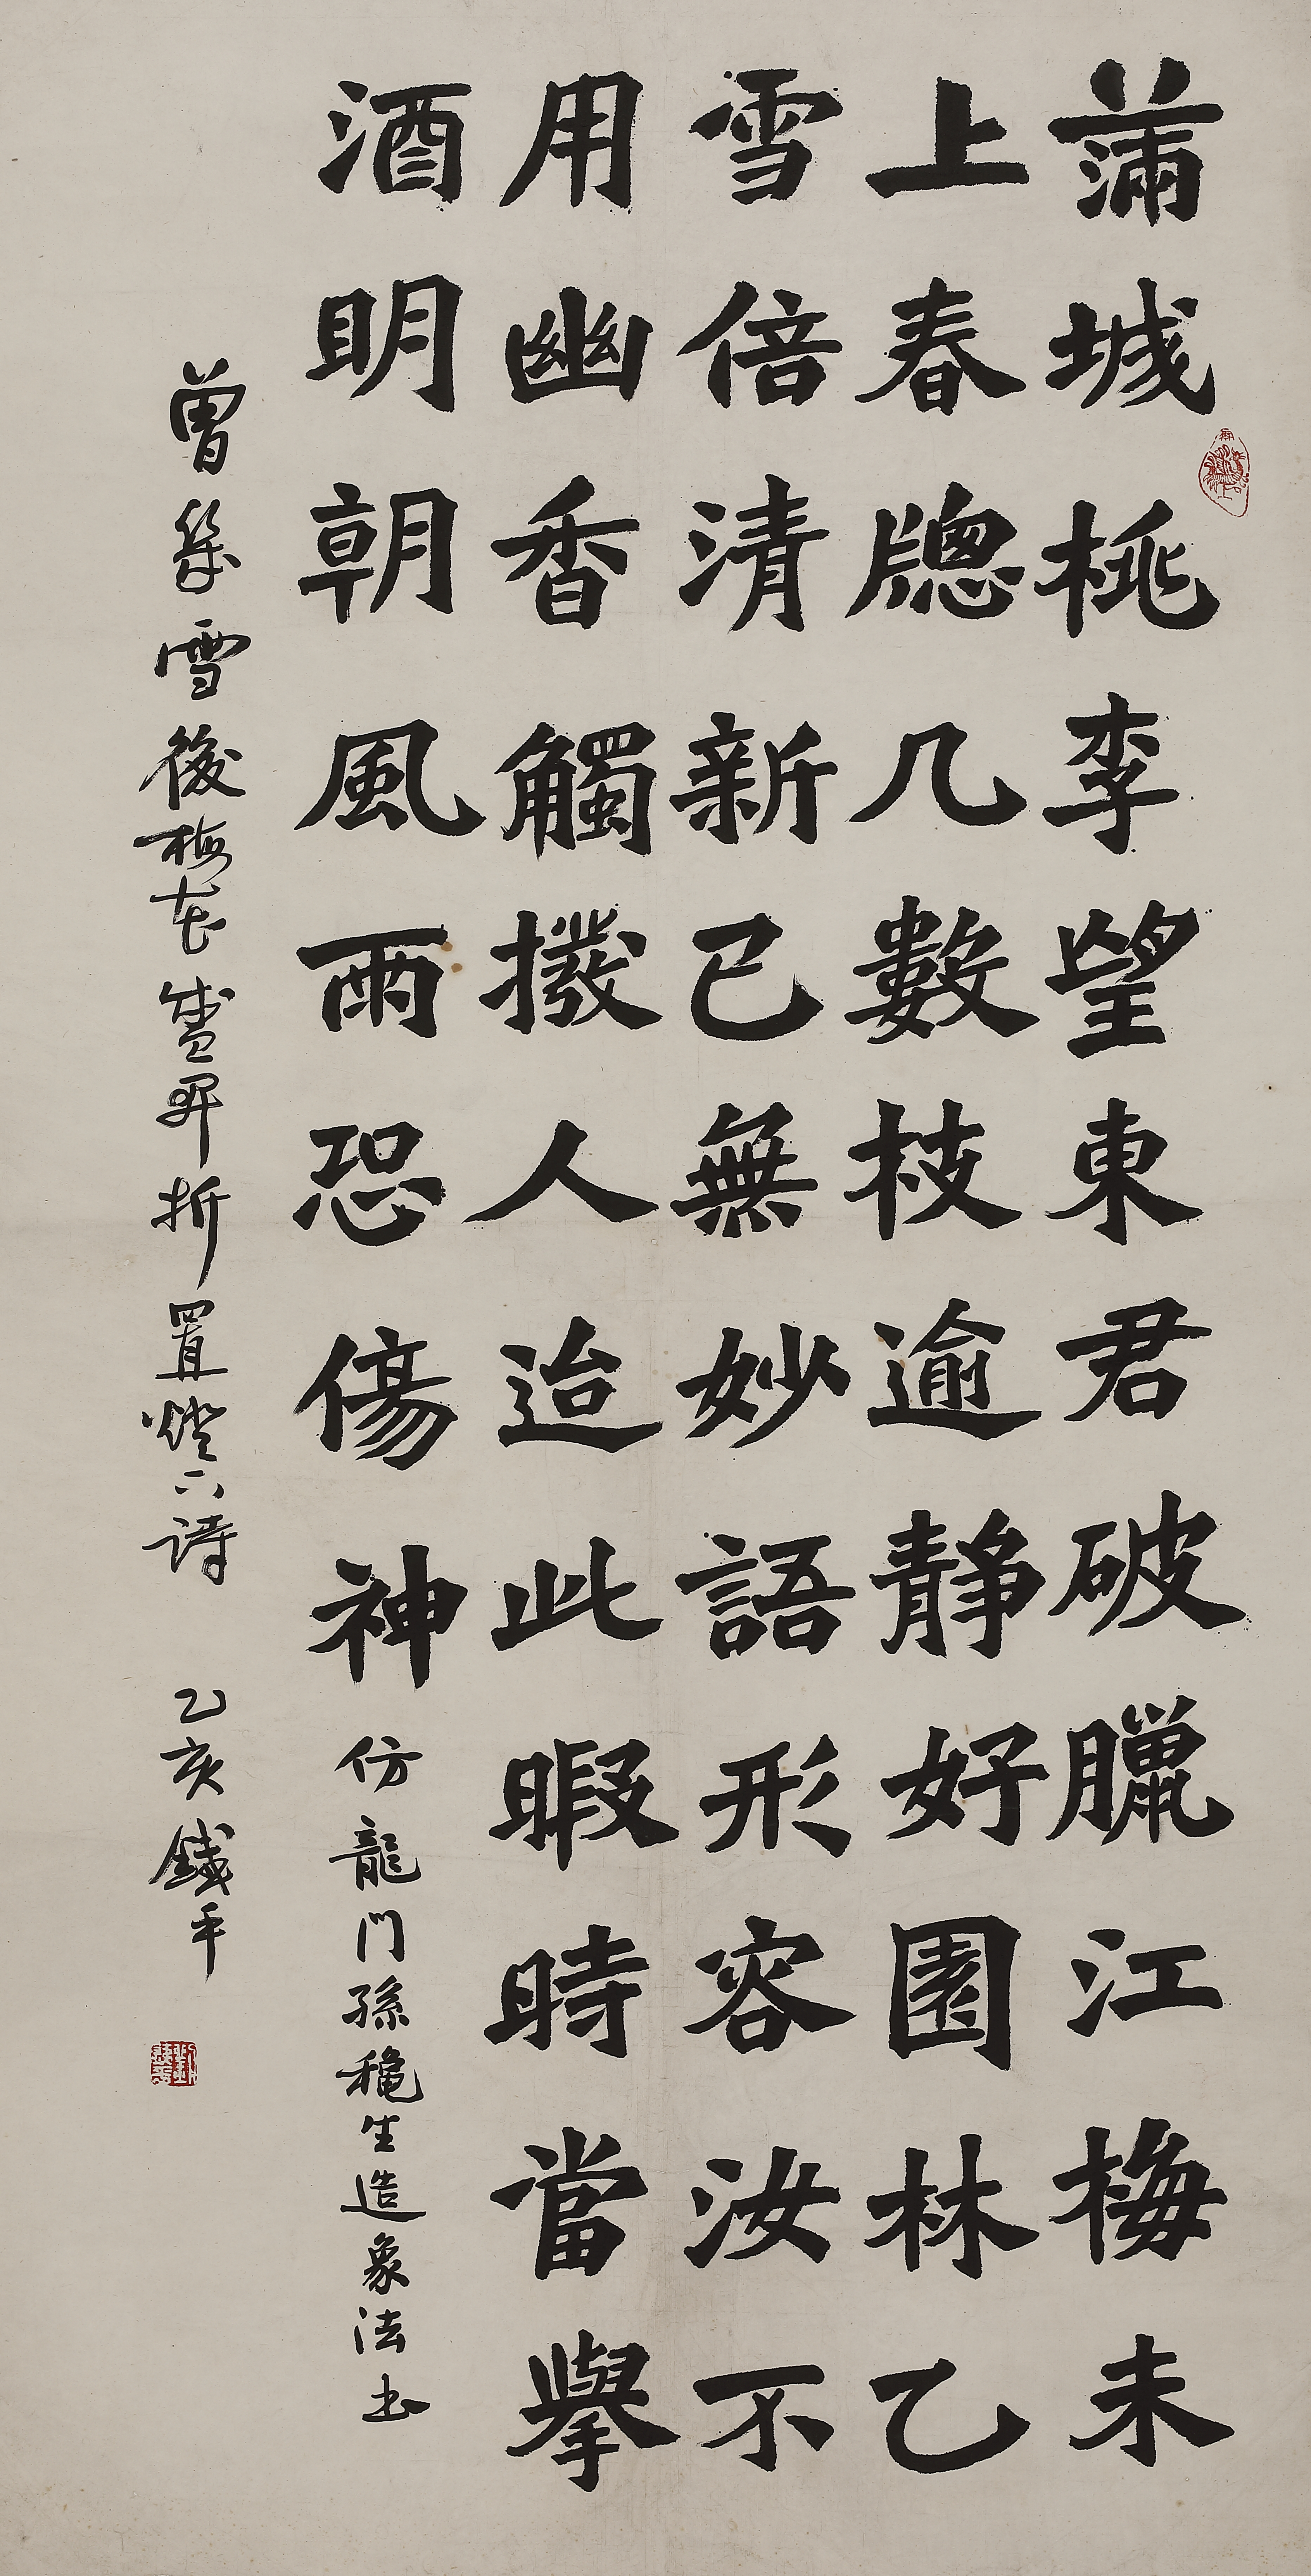 滿城桃李望東君破臘江梅未
上春牕几數枝逾靜好園林乙
雪倍清新已無妙語形容汝不
用幽香觸撥人迨此暇時當舉
酒明朝風雨恐傷神
仿龍門孫秋生造象法書
曾幾雪後梅花盛開折置燈下詩
乙亥鐵平